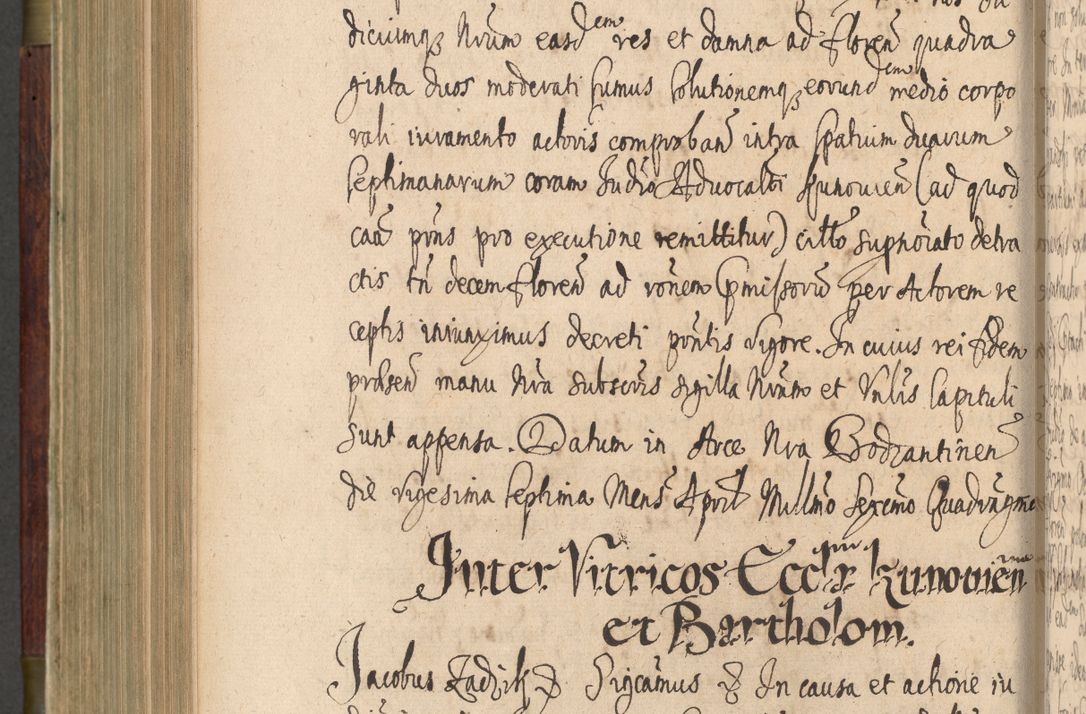 dicuimqz Nrum easdem res et damna ad Floren quadra
ginta duos moderati sumus solutionemqz eorundem medio corpo
rali iuramento actoris comproban intra spatium duarum
septimanarum coram Judio Advocalti Kunouien (ad quod
caã pñs pro executione remittitur) citto suprãto detra
ctis tñ decem floren ad rõnem Cõmissorũ per Actorem re
ceptis iniunximus decreti põntis vigore. In cuius rei fidem
prẽsen manu Nra subscris sigilla Nrum et Vnlis Capituli
sunt appensa. Datum in Arce Nra Bodzantinen
die vigesima septima Mens Aprił Millmo Sexcmo Quadragmo
Inter Vitricos Ecclr Kunouien
et Bartholom.
Jacobus Zadzik &c Sigcamus &c In causa et actione iu